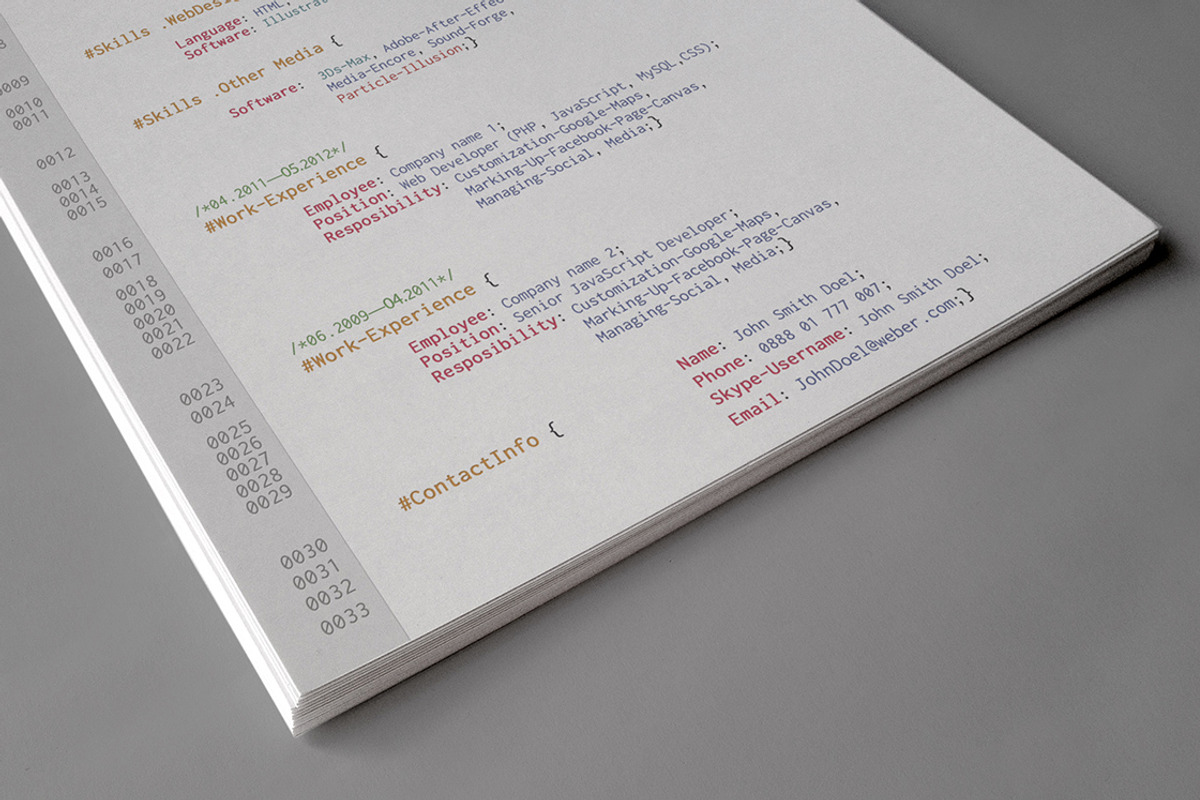 #Skills .WebDesig
Language: HTML,
Software: Illustrat
#Skills .Other Media {
Software: 3Ds-Max, Adobe-After-Effec
Media-Encore, Sound-Forge,
Particle-Illusion;}
/*04.2011—05.2012*/
#Work-Experience {
Employee: Company name 1;
Position: Web Developer (PHP, JavaScript, MySQL,CSS);
Resposibility: Customization-Google-Maps,
Marking-Up-Facebook-Page-Canvas,
Managing-Social, Media;}
/*06.2009—04.2011*/
#Work-Experience {
Employee: Company name 2;
Position: Senior JavaScript Developer;
Resposibility: Customization-Google-Maps,
Marking-Up-Facebook-Page-Canvas,
Managing-Social, Media;}
#ContactInfo {
Name: John Smith Doel;
Phone: 0888 01 777 007;
Skype-Username: John Smith Doel;
Email: JohnDoel@weber.com;}
0009
0010
0011
0012
0013
0014
0015
0016
0017
0018
0019
0020
0021
0022
0023
0024
0025
0026
0027
0028
0029
0030
0031
0032
0033